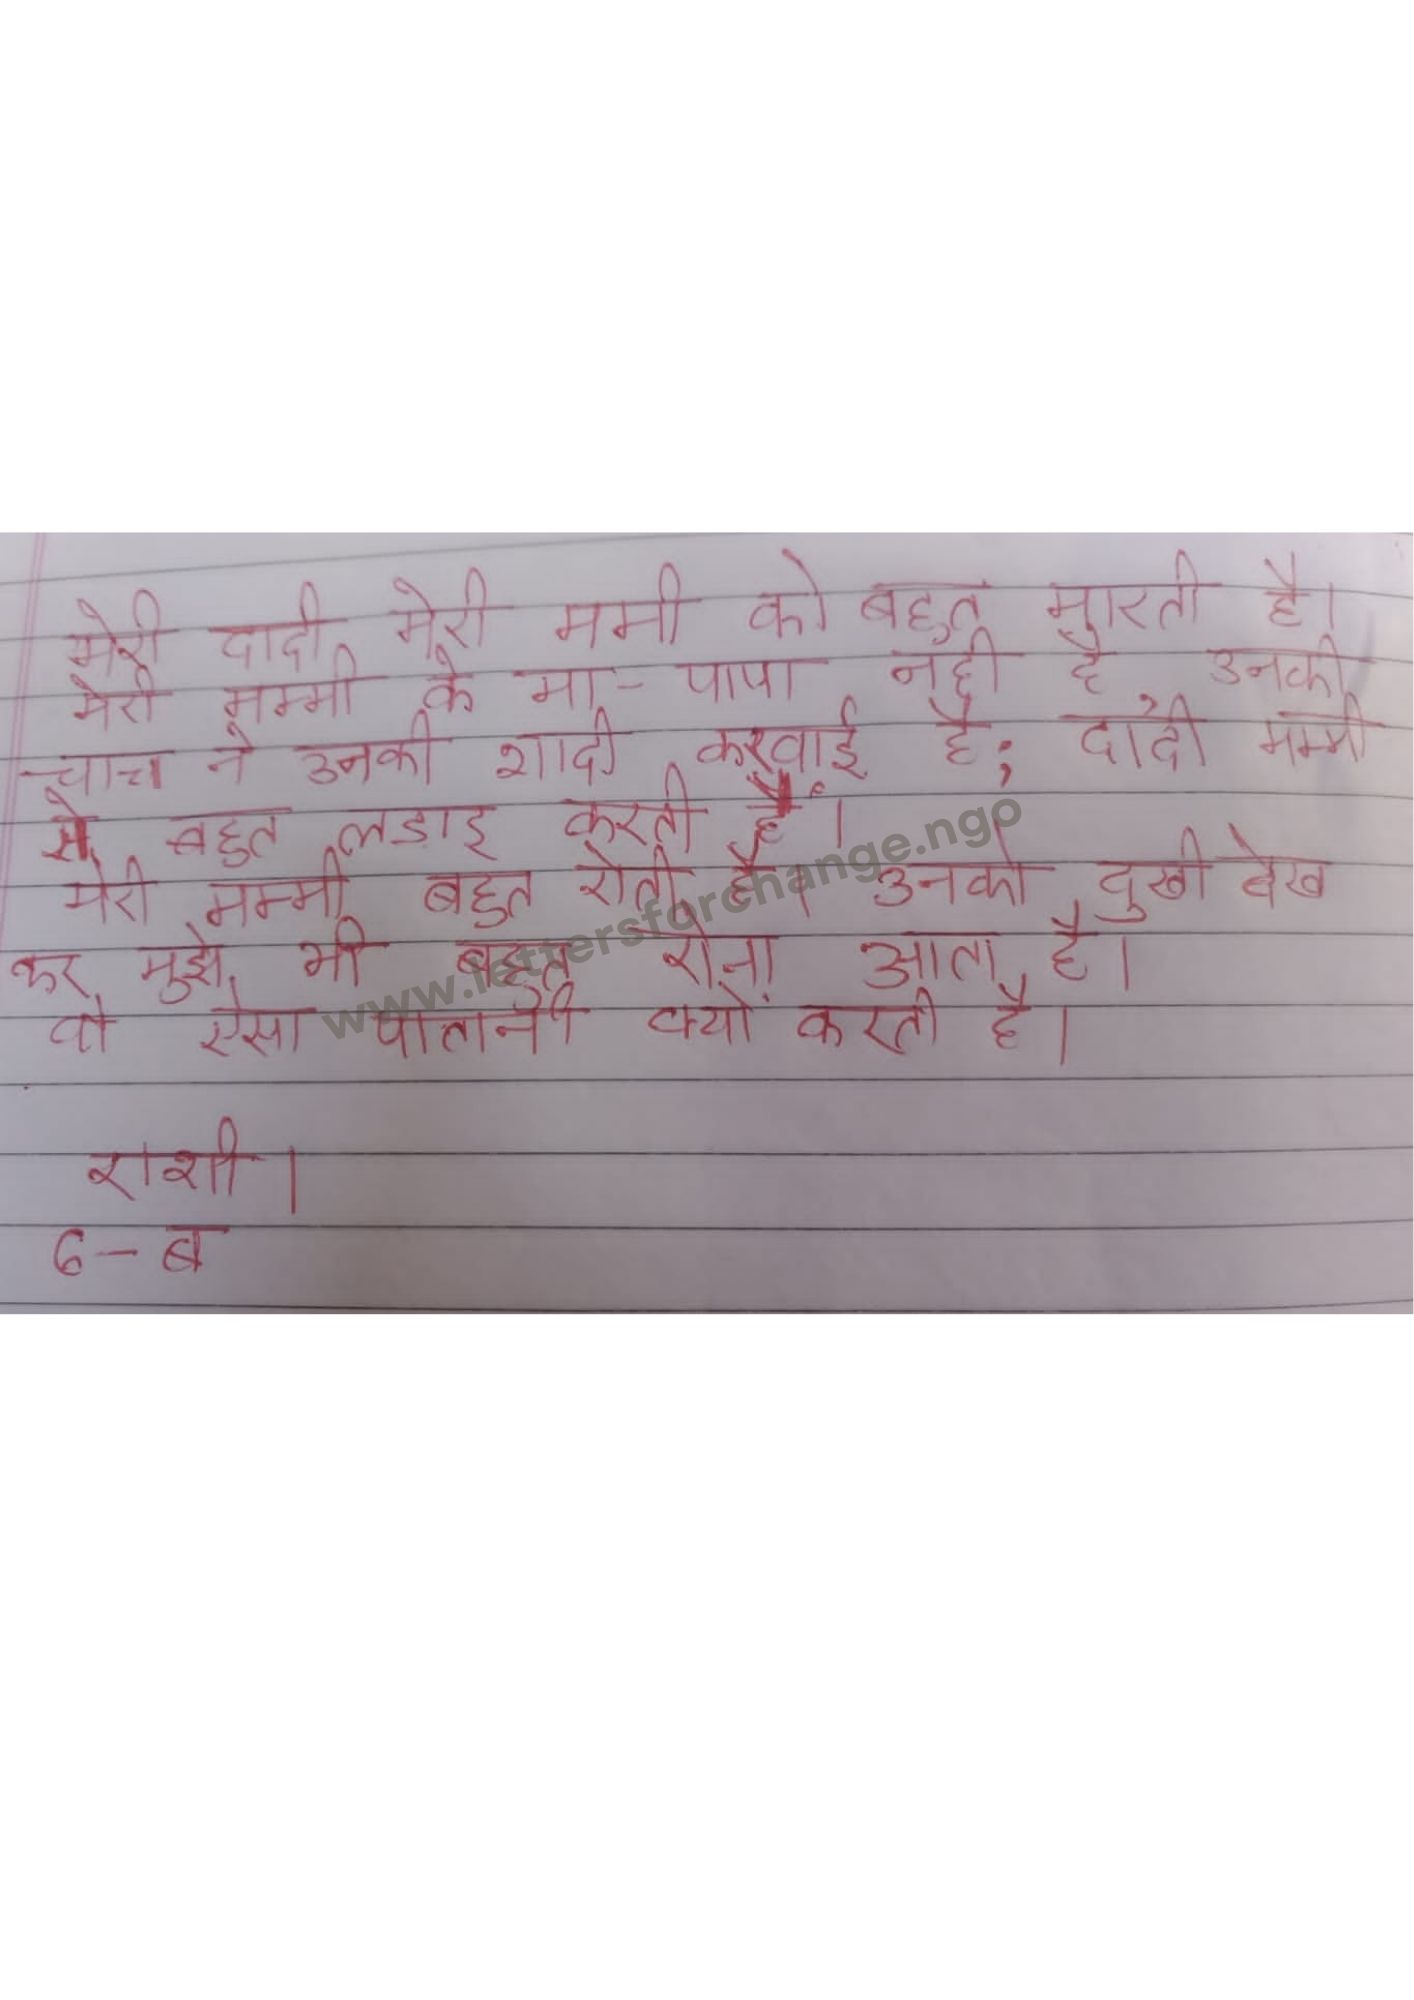 मेरी दादी मेरी ममी को बहुत मारती है।
मेरी मम्मी के मा - पापा नही है उनकी
चाचा ने उनकी शादी करवाई है; दादी मम्मी
से बहुत लडाइ करती हैं।
मेरी मम्मी बहुत रोती है। उनको दुखी देख
कर मुझे भी बहुत रोना आता है।
वो ऐसा पातानी क्यो करती है।
राशी।
6 - ब
www.lettersforchange.ngo